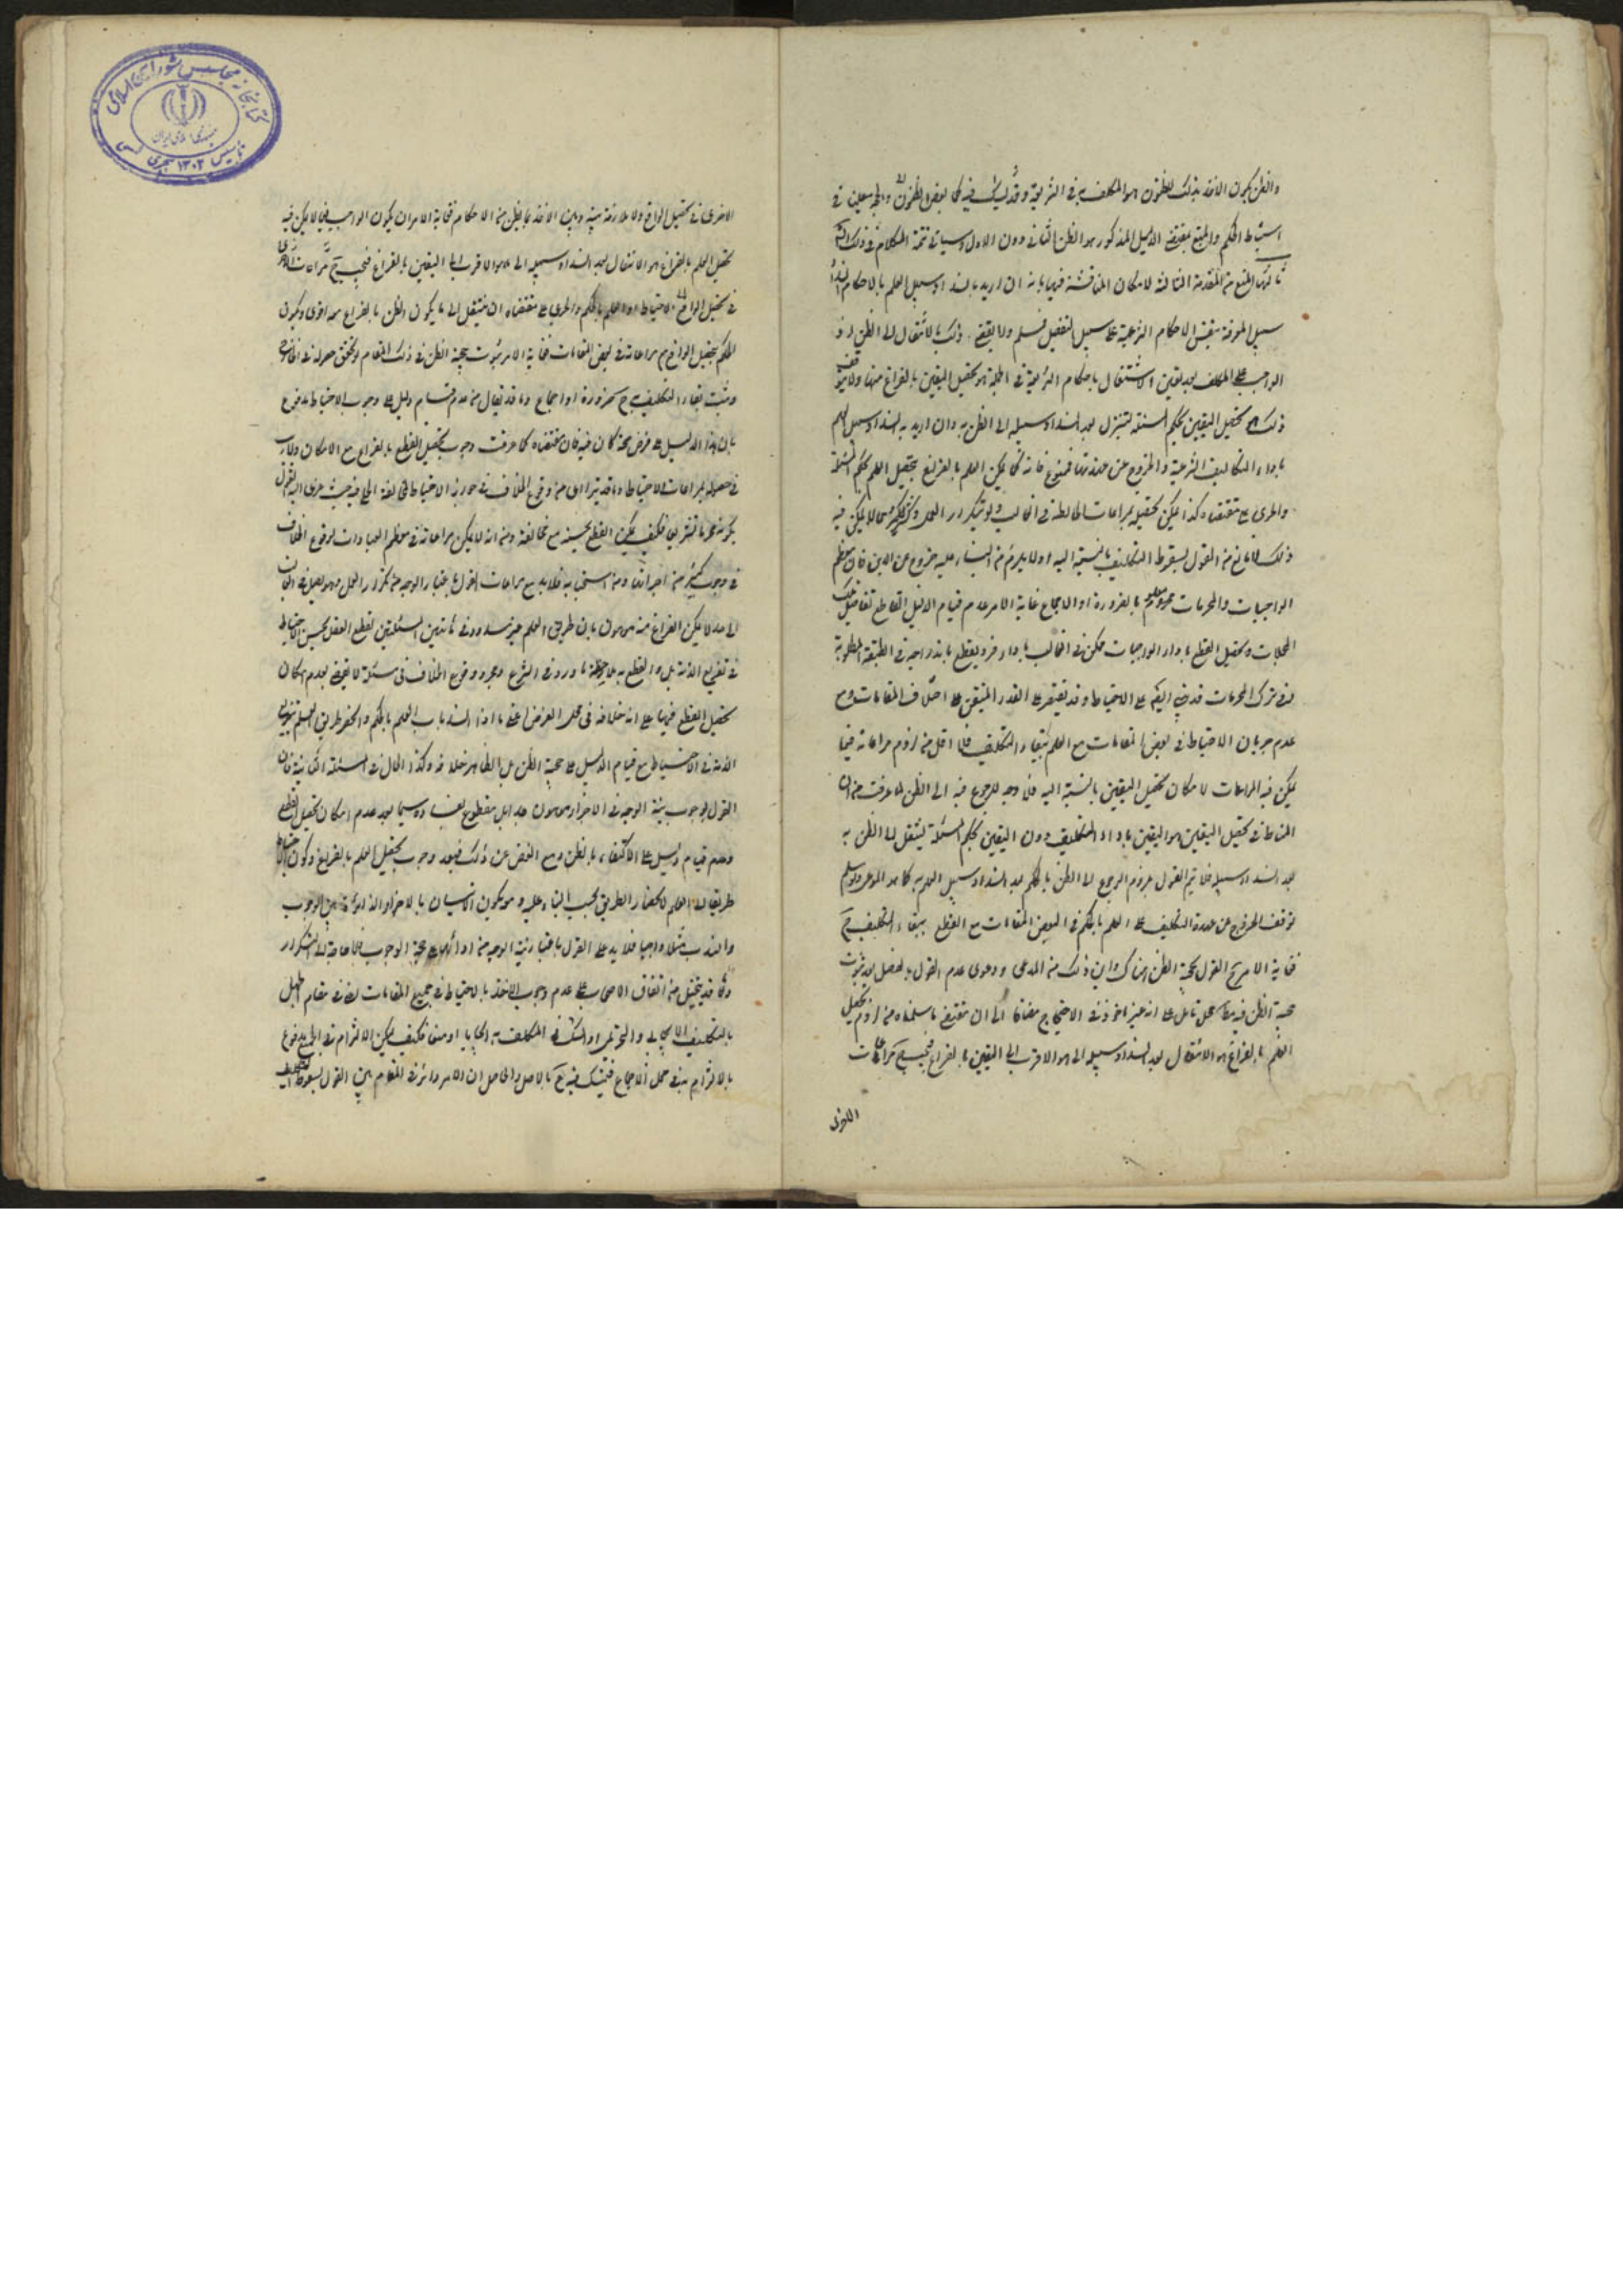 والظن بكون الاخذ بذلك الظنون هو المكلف به في الشريعة وقد ليس فيه كما بعض الظنون
استنباط الحكم والمتبع بمقتضى الدليل المذكور هو الظن الثاني دون الاول وسياتي تتمة الكلام في ذلك
ثالثها المنع من المقدمة الثالثة لامكان المناقشة فيها بانه ان اريد بانسداد سبيل العلم بالاحكام انسداد
سبيل المعرفة بنفس الاحكام الشرعية على سبيل التفصيل فمسلم ولا يقضي ذلك بالانتقال الى الظن اذ
الواجب على المكلف بعد يقين الاشتغال باحكام الشريعة في الجملة هو تحصيل اليقين بالفراغ منها ولا يتوقف
ذلك على تحصيل اليقين بحكم المسئلة ليتنزل بعد انسداد سبيله الى الظن به وان اريد به انسداد سبيل العلم
باداء التكاليف الشرعية والخروج عن عهدتها فممنوع فانه كما يمكن العلم بالفراغ بتحصيل العلم بحكم المسئلة
والجري على مقتضاه كذا يمكن تحصيله بمراعات الحائطة في الغالب ولو بتكرار العمل وكثير مما لا يمكن فيه
ذلك لا مانع من القول بسقوط التكليف بالنسبة اليه اولا يلزم من البناء عليه خروج عن الدين فان معظم
الواجبات والمحرمات معلوم بالضرورة او الاجماع غاية الامر عدم قيام الدليل القاطع تفاصيل تلك
المجملات وتحصيل القطع باداء الواجبات ممكن في الغالب باداء فرد يقطع باندراجه في الطبيعة المطلوبة
وفي ترك المحرمات قد يبنى ايضا على الاحتياط وقد يقتصر على القدر المتيقن على اختلاف المقامات ومع
عدم جريان الاحتياط في بعض المقامات مع العلم ببقاء التكليف فلا اقل من لزوم مراعاته فيما
يمكن فيه المراعات لامكان تحصيل اليقين بالنسبة اليه فلا وجه للرجوع فيه الى الظن لما عرفت من ان
المناط في تحصيل اليقين هو اليقين باداء التكليف دون اليقين بحكم المسئلة لينتقل الى الظن به
بعد انسداد سبيله فلا يتم القول بلزوم الرجوع الى الظن بالحكم بعد انسداد سبيل العلم به كما هو المدعى ولو سلم
توقف الخروج عن عهدة التكليف على العلم بالحكم في البعض المقامات مع القطع ببقاء التكليف ح
فغاية الامر ح القول بحجية الظن هناك واين ذلك من المدعى ودعوى عدم القول بالفصل بعد ثبوت
حجية الظن فيه مط محل تامل على انه غير ماخوذ في الاحتجاج مضافا الى ان مقتضى ما سلمناه من لزوم تحصيل
العلم بالفراغ هو الانتقال بعد انسداد سبيله الى ما هو الاقرب الى اليقين بالفراغ فيجب ح مراعات
الاحرى
الاحرى في تحصيل الواقع ولا ملازمة بينه وبين الاخذ بما يظن من الاحكام فغاية الامر ان يكون الواجب فيما لا يمكن فيه
تحصيل العلم بالفراغ هو الانتقال بعد انسداد سبيله الى ما هو الاقرب الى اليقين بالفراغ فيجب ح مراعات
في تحصيل الواقع الاحتياط او العلم بالحكم والجري على مقتضاه ان ينتقل الى ما يكون الظن بالفراغ معه اقوى ويكون
الحكم بتحصيل الواقع مع مراعاته في بعض المقامات فغاية الامر ثبوت حجية الظن في ذلك المقام لو تحقق حصوله في الخارج
وثبت بقاء التكليف ح بضرورة او اجماع وما قد يقال من عدم قيام دليل على وجوب الاحتياط مدفوع
بان هذا الدليل على فرض صحته كان فيه فان مقتضاه كما عرفت وجوب تحصيل القطع بالفراغ مع الامكان ولا ريب
في حصوله بمراعات الاحتياط وما قد يترائى من وقوع الخلاف في جواز الاحتياط المخالفة الحلي فيه حيث عزى اليه القول
بكونه محرما تشريعيا فكيف يمكن القطع بحسنه مع مخالفته ومن انه لا يمكن مراعاته في معظم العبادات لوقوع الخلاف
في وجوب كثير من اجزائها ومن استحبابه فلا بد مع مراعات القول باعتبار الوجه من تكرار العمل وهو يصل في الغالب
الى حد لا يمكن الفراغ منه موهون بان طريق العلم غير مسدود في هاتين المسئلتين لقطع العقل بحسن الاحتياط
في تفريغ الذمة بل والقطع به بملاحظة ما ورد في الشرع ومجرد وقوع الخلاف في مسئلة لا يقضي بعدم امكان
تحصيل القطع فيها على ان خلافه في محل الفرض اعني ما اذا انسد باب العلم بالحكم وانحصر طريق العلم بتفريغ
الذمة في الاحتياط مع قيام الدليل على حجية الظن بل الظاهر خلافه وكذا الحال في المسئلة الثانية فان
القول بوجوب نية الوجه في الاجزاء موهون جدا بل مقطوع بفساده سيما بعد عدم امكان تحصيل القطع
وعدم قيام دليل على الاكتفاء بالظن ومع الغض عن ذلك فبعد وجوب تحصيل العلم بالفراغ وكون الاحتياط
طريقا الى العلم لانحصار الطريق يجب البناء عليه ومع كون الاتيان بالاجزاء الدائرة بين الوجوب
والندب مثلا واجبا فلا بد على القول باعتبار نية الوجه من ادائها على جهة الوجوب فلا حاجة الى التكرار
وما قد يتخيل من اتفاق الاصحاب على عدم وجوب الاخذ بالاحتياط في جميع المقامات اعني في مقام الجهل
بالتكليف الايجابي والتحريمي او الشك في المكلف به ايجابا او منعا فكيف يمكن الالتزام في الجميع مدفوع
بالالتزام به في محل الاجماع فيتمسك فيه ح بالاصل والحاصل ان الامر دائر في المقام بين القول بسقوط التكليف
کتابخانه مجلس شورای اسلامی
جمهوری اسلامی ایران
تاسیس ۱۳۰۲ هجری شمسی